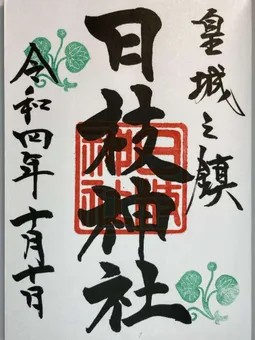 皇城之鎮
日枝神社
令和四年十月十日
日枝神社